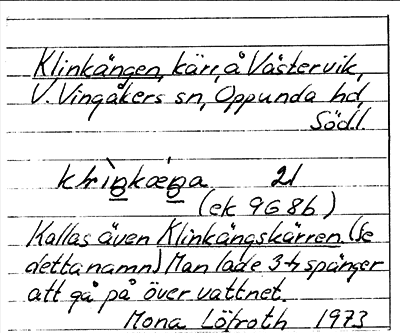 Klinkängen, kärr, å Västervik,
V. Vingåkers sn, Oppunda hd,
Södl.
21
(ek 9G 8b)
Kallas även Klinkängskärren. (Se
detta namn) Man lade 3-4 spänger
att gå på över vattnet.
Mona Löfroth 1973